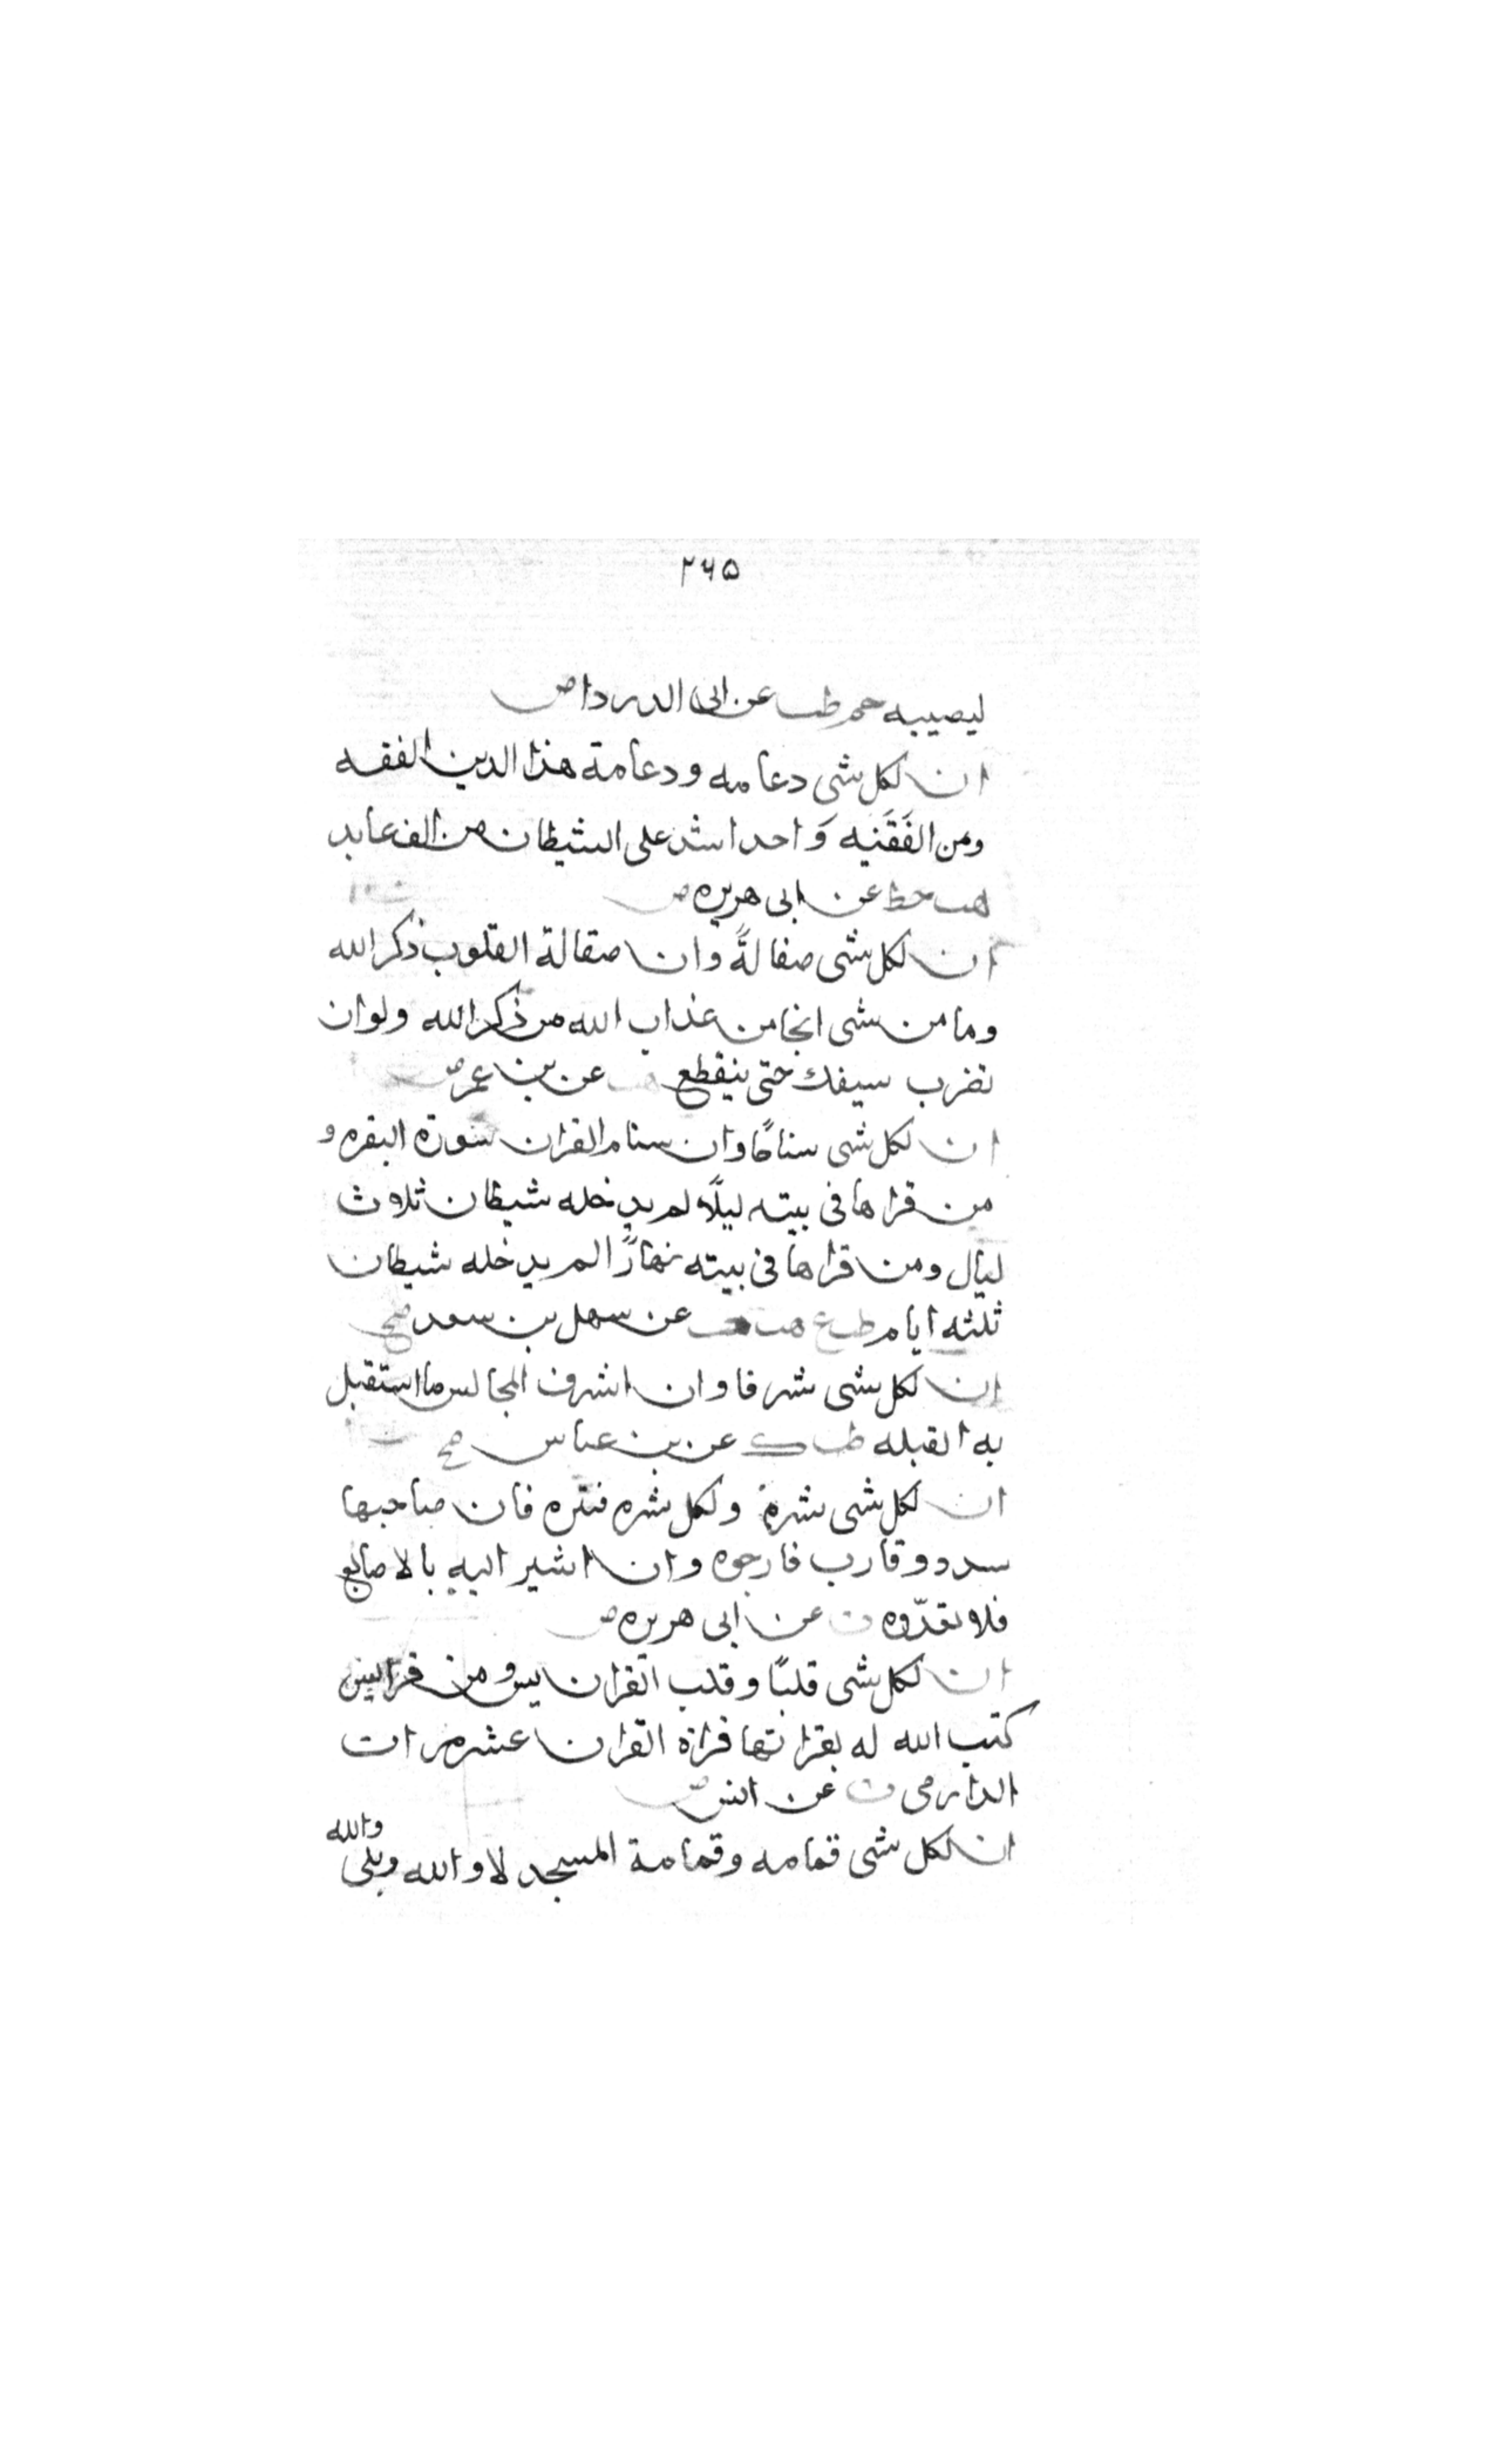 ٢٦٥
ليصيبه حم طب عن ابى الدردا ض
ان لكل شى دعامه ودعامة هذا الدين الفقه
ومن الفَقَنيه وَاحد اشد على الشيطان من الف عابد
هب خط عن ابى هريره ض
ان لكل شى صفالةً وان صقالة القلوب ذكر الله
وما من شى انجا من عذاب الله من ذكر الله ولوان
تضرب سيفك حتى ينقطع هب عن بن عمر ض
ان لكل شى سنامًا وان سنام القران سورة البقره و
من قراها فى بيته ليلًا لم يدخله شيطان ثلاث
ليال ومن قراها فى بيته نهارًا لم يدخله شيطان
ثلثه ايام طب ع هب عن سهل بن سعد صح
ان لكل شى شرفا وان اشرف المجالس ما استقبل
به القبله طب ك عن بن عباس صح
ان لكل شى شرة ولكل شره فتره فان صاحبها
سدد وقارب فارجوه وان اشير اليه بالاصابع
فلا تعدّوه ت عن ابى هريره ض
ان لكل شى قلبًا وقلب القران يس ومن قرا يس
كتب الله له بقراتها قراة القران عشر مرات
الدارمى ت عن انس ض
ان لكل شى قمامه وقمامة المسجد لا والله وبلى والله